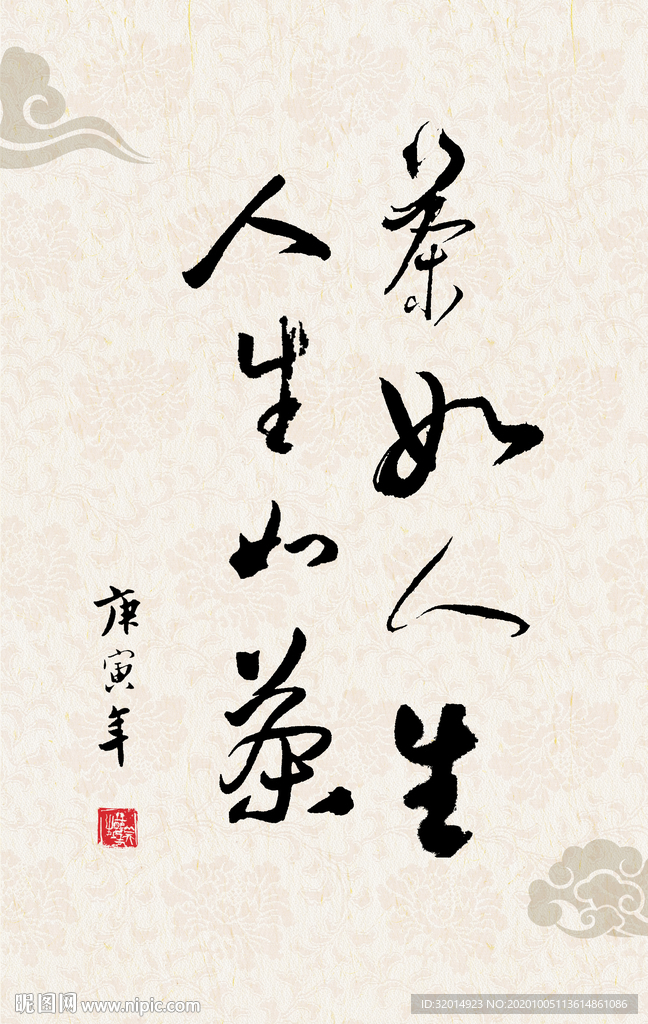 茶如人生
人生如茶
庚寅年
昵图网 www.nipic.com
ID:32014923 NO:20201005113614861086